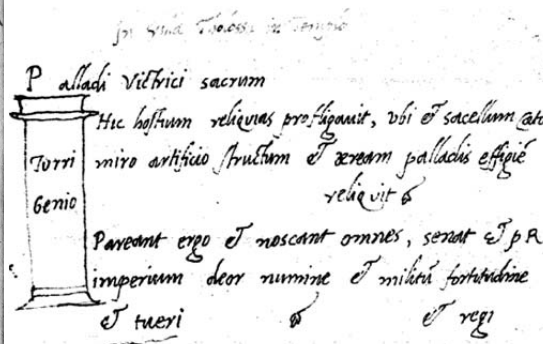 In Tholosa in Templo
Palladi Victrici sacrum
Hic hostium reliquias profligauit, vbi et sacellum Cato
miro artificio structum et æream palladis effigiē
reliquit
Turri
Genio
Pareant ergo et noscant omnes, senat et p R
imperium deor numine et militū fortitudine
et tueri et regi